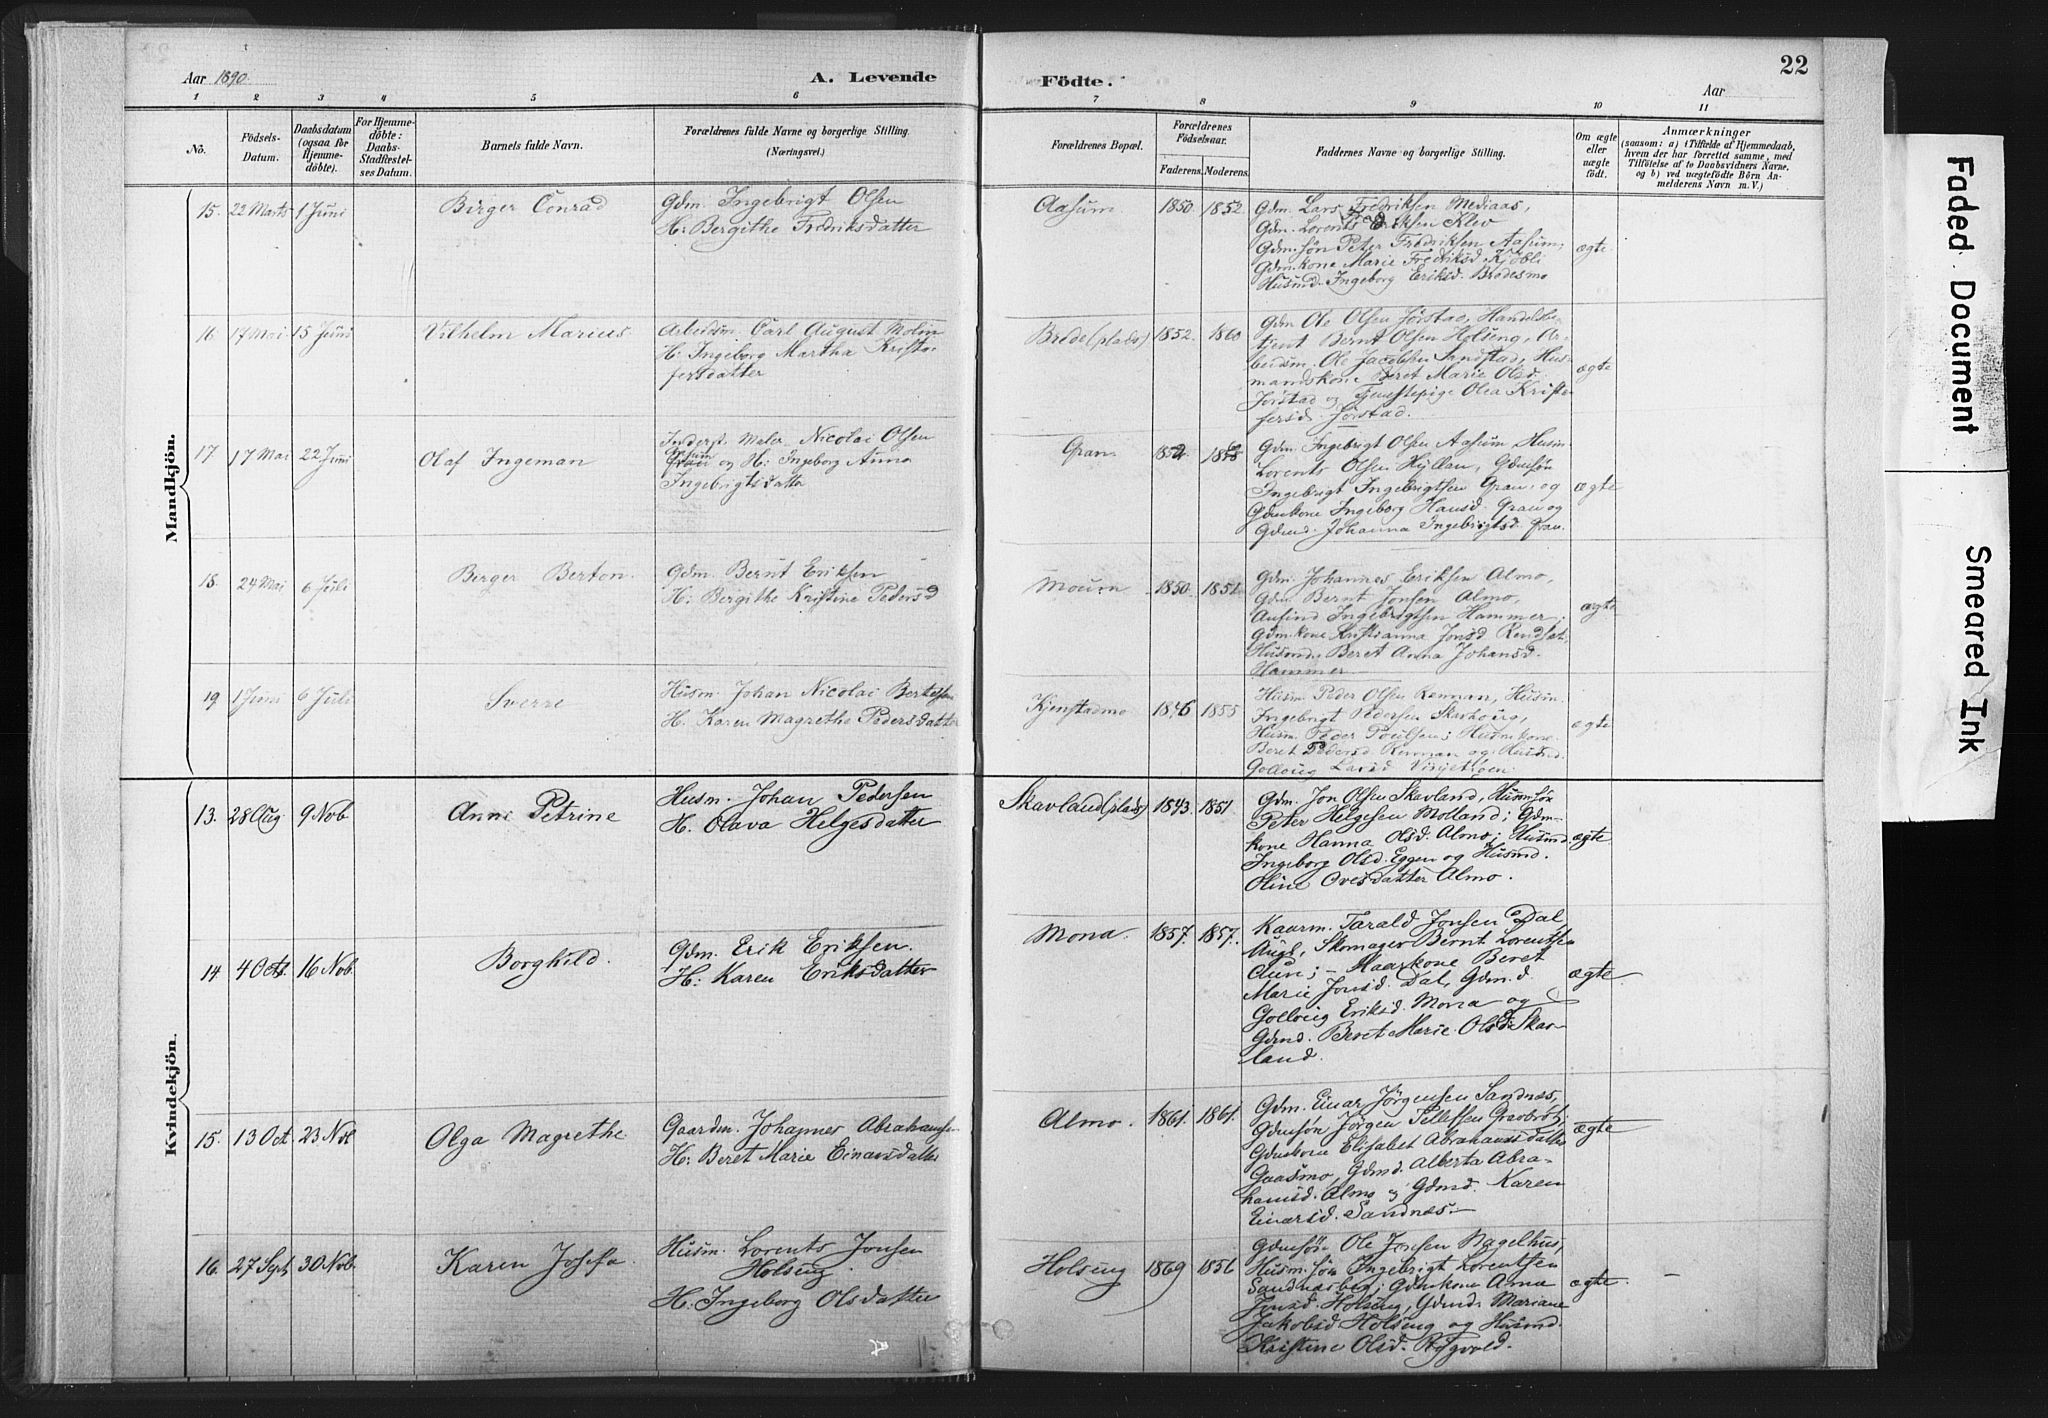 22
Aar 1890.
A. Levende
Födte.
Aar
1 2 3 4 5 6 7 8 9 10 11
No.
Födsels-
Datum.
Daabsdatum
(ogsaa for
Hjemme-
döbte).
For Hjemme-
döbte:
Daabs-
Stadfæstel-
ses Datum.
Barnets fulde Navn.
Forældrenes fulde Navne og borgerlige Stilling.
(Næringsvei.)
Forældrenes Bopæl.
Forældrenes
Födselsaar.
Faderens. Moderens.
Faddernes Navne og borgerlige Stilling.
Om ægte
eller
uægte
födt.
Anmærkninger
(saasom: a) i Tilfælde af Hjemmedaab,
hvem der har forrettet samme, med
Tilföielse af to Daabsvidners Navne,
og b) ved uægtefödte Börn An-
melderens Navn m. V.)
Mandkjön.
15. 22 Marts 1 Juni
Birger Conrad
Gdm. Ingebrigt Olsen
H: Bergithe Fredriksdatter
Aasum 1850. 1852.
Gdm. Lars Fredriksen Mediaas,
Gdm. Lorents Eriksen Klev
Gdm.søn Peter Fredriksen Aasum,
Gdm.kone Marie Fredriksd. Kjøbli
Husmd. Ingeborg Eriksd. Brødesmo
ægte
16. 17 Mai 15 Juni
Vilhelm Marius
Arbeidsm. Carl August Molin
H: Ingeborg Martha Kristo-
fersdatter
Brøde(plads) 1852. 1860
Gdm Ole Olsen Jørstad, Handelsbe-
tjent Bernt Olsen Holseng, Ar-
beidsm. Ole Jacobsen Sandstad, Hus-
mandskone Beret Marie Olsd.
Jørstad og Tjenestepige Olea Kristo-
fersd. Jørstad.
ægte
17 17 Mai 22 Juni
Olaf Ingeman
Maler Nicolai Olsen
og H: Ingeborg Anna
Ingebrigtsdatter
Gran
Gdm. Ingebrigt Olsen Aasum, Husm.
Lorents Olsen Hyllan, Gdmsøn
Ingebrigt Ingebrigtsen Gran, og
Gdmkone Ingeborg Hansd. Gran og
Gdmd. Johanna Ingebrigtsd. Gran.
ægte
18. 24 Mai 6 Juli
Birger Berton.
Gdm. Bernt Eriksen
H: Bergithe Kristine Pedersd
Moum 1850. 1851.
Gdm. Johannes Eriksen Almo,
Gdm. Bernt Jonsen Almo,
Anfind Ingebrigtsen Hammer;
Gdm.kone Kristianna Jonsd. Rendsæt,
Husmd. Beret Anna Johansd.
Hammer
ægte
19 1 Juni 6 Juli
Sverre
Husm. Johan Nicolai Bertesen
H. Karen Magrethe Pedersdatter
Kjenstadmo 1846 1855
Husm. Peder Olsen Renman, Husm.
Ingebrigt Pedersen Skavhoug,
Husm. Peder Poulsen; Husmkone
Beret Pedersd. Renman og Husmd.
Golloug Larsd. Vinjetroen.
ægte
Kvindekjön.
13. 28 Aug 9 Nob
Anne Petrine
Husm. Johan Pedersen
H. Olava Helgesdatter
Skavland(plads) 1843. 1851.
Gdm. Jon Olsen Skavland, Husmsøn
Peter Helgesen Molland; Gdm-
kone Hanna Olsd. Almo; Husmd.
Ingeborg Olsd. Eggen og Husmd.
Oline Ovesdatter Almo.
ægte
14 4 Octb. 16 Nob.
Borghild.
Gdm. Erik Eriksen.
H: Karen Eriksdatter
Mona. 1857. 1857.
Kaarm. Tarald Jonsen Dal,
Skomager Bernt Lorentsen
Aune; - Kaarkone Beret
Marie Jonsd. Dal, Gdm.d.
Golloug Eriksd. Mona og
Gdmd. Beret Marie Olsd. Skav-
land.
ægte
15. 13 Oct 23 Nob
Olga Magrethe
Gaardm. Johannes Abrahamsen
H: Beret Marie Einarsdatter
Almo. 1861. 1861.
Gdm. Einar Jørgensen Sandnæs,
Gdmsøn Jørgen Tellefsen Gravbrøt;
Gdmkone Elisabet Abrahamsdatter
Gaasmo, Gdmd. Alberta Abra-
hamsd. Almo og Gdmd. Karen
Einarsd. Sandnæs.
ægte
16. 27 Sept 30 Nob.
Karen Josefa.
Husm. Lorents Jonsen
Holseng.
H: Ingeborg Olsdatter
Holseng 1869 1856
Gdmsøn Ole Jonsen Nagelhus,
Husm.søn Ingebrigt Lorentsen
Sandnæsbeg; Gdmkone Anna
Jonsd. Holseng, Gdmd. Mariane
Jakobsd Holseng og Husmd.
Kristine Olsd. Rognvold.
ægte.
Faded Document
Smeared Ink